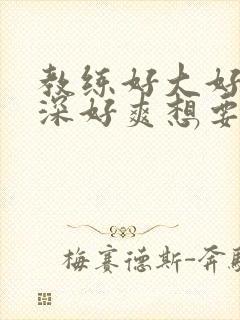 教练好大好
深好爽想要
梅赛德斯-奔